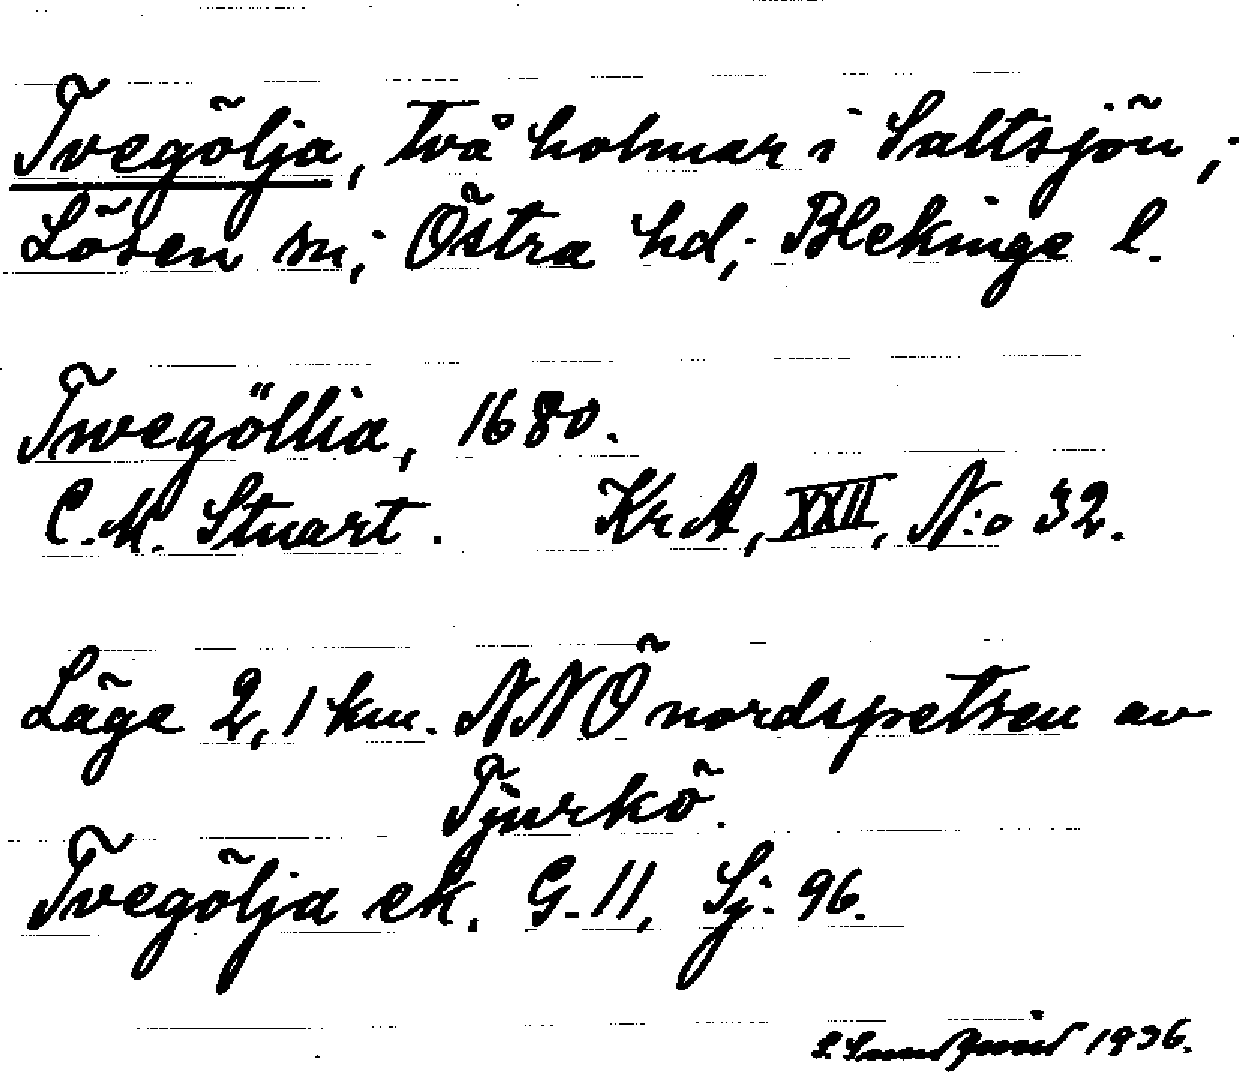 Tvegölja, två holmar i Saltsjön;
Lösen sn; Östra hd; Blekinge l.
Twegöllia, 1680.
C.M. Stuart. KrA, XXII, N:o 32.
Läge 2,1 km. NNÖ nordspetsen av
Tjurkö.
Tvegölja ek. G-11, Sj: 96.
1936.